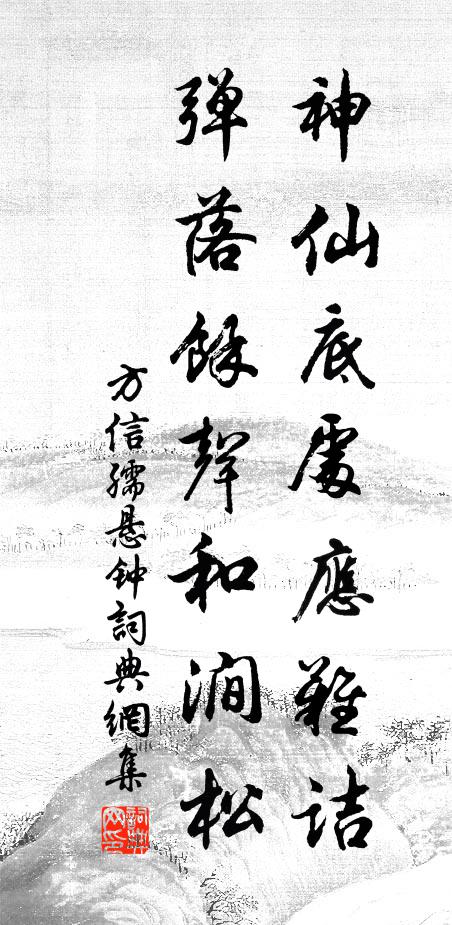 神仙底處應難詰
彈落餘聲和澗松
方信孺悬钟詞典網集